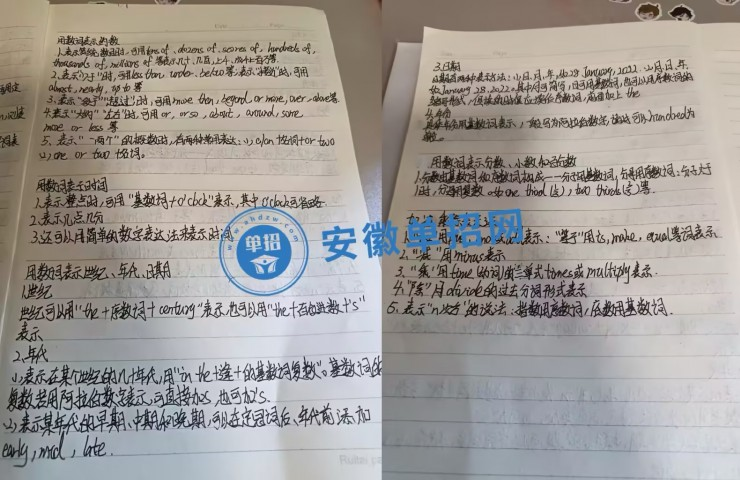 用数词表示约数
1.表示笼统数量时,可用tens of, dozens of, scores of, hundreds of,
thousands of, millions of 等表示几十,几百,上千,成千上百万等.
2.表示"少于"时,可用less than, under, below等.表示"接近"时,可用
almost, nearly, up to 等
3.表示"多于""超过"时,可用more than, beyond, or more, over, above等.
4.表示"大约""左右"时,可用 or, or so, about, around, some
more or less 等
5.表示"一两个"的概数时,有两种常见表达:
(2) one or two 名词.
用数词表示时间
1.表示整点时,可用"基数词+o'clock"表示,其中o'clock可省略.
2.表示几点几分
3.还可以用简单的数字表达法来表示时间
用数词表示世纪、年代、日期
1.世纪
世纪可以用"the+序数词+century"表示,也可以用"the+百位进数+'s"
表示
2.年代
(1)表示在某个世纪的几十年代,用"in the+逢十的基数词复数"。基数词的
复数若用阿拉伯数字表示,可直接加s,也可加's.
(2)表示某年代的早期、中期和晚期,可以在定冠词后、年代前添加
early, mid, late.
3.日期
日期有两种表达方法:(1)日,月,年,如28 January, 2022. (2)月,日,年,
如January 28, 2022.
前面加上 the
4.
hundred
用数词表示分数、小数和百分数
1.分数由基数词和序数词构成——分子用基数词,分母用序数词;分子大于
1时,分母用复数 如one third(),two thirds()等.
表示:"等于"用is, make, equal等词表示
2."减"用minus表示
3."乘"用time的词的三单式times或multiply表示.
4."除"用divide的过去分词形式表示
5.表示"n次方"的说法:指数用序数词,底数用基数词.
安徽单招网
单招
www.ahdzw.com